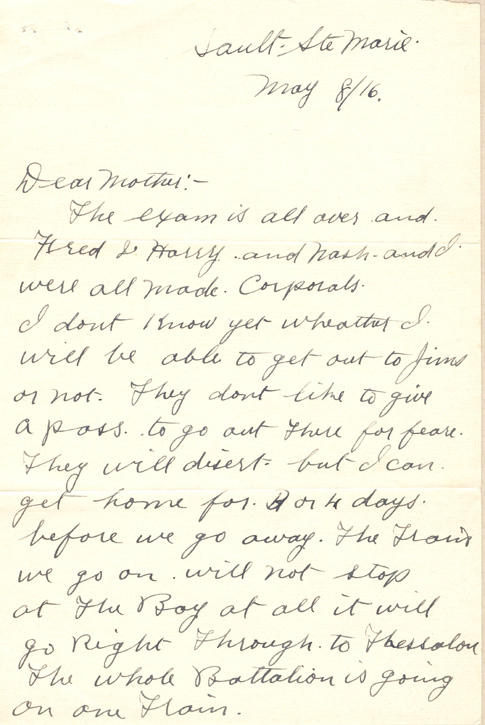 Sault. Ste Marie.
May 8/16.
Dear Mother:-
The exam is all over and.
Fred & Harry. and Nash. and I.
were all made. Corporals.
I dont Know yet wheather I.
will be able to get out to Jims
or not. They dont like to give
a pass. to go out there for feare.
They will disert. but I can.
get home for. or 4 days.
before we go away. The Train
we go on. will not stop
at The Bay at all it will
go Right Through. to Thessalon
The whole Battalion is going
on one Train.